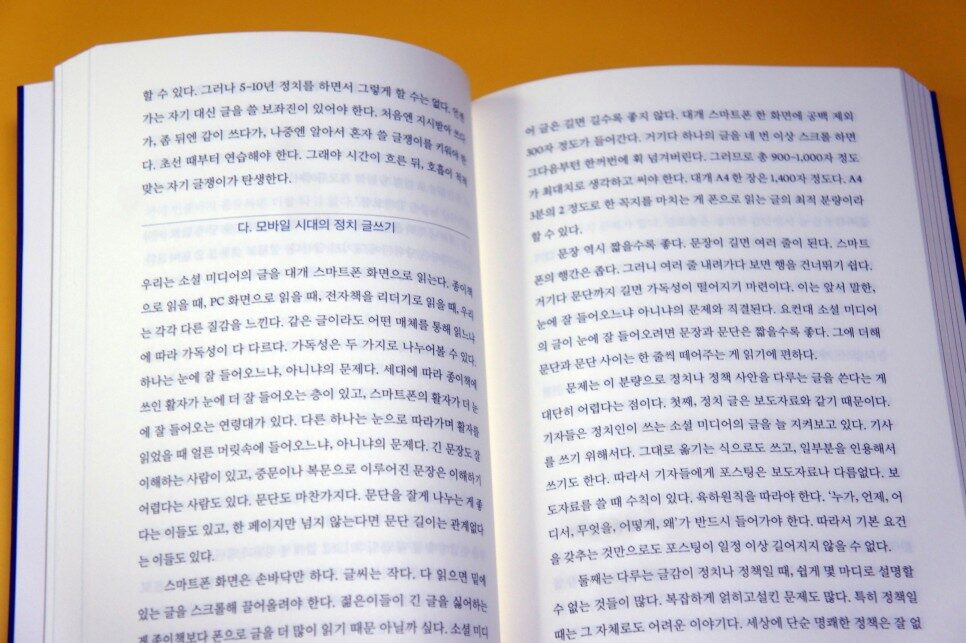 할 수 있다. 그러나 5-10년 정치를 하면서 그렇게 할 수는 없다.
가는 자기 대신 글을 쓸 보좌진이 있어야 한다. 처음엔 지시받아 쓰다
가, 좀 뒤엔 같이 쓰다가, 나중엔 알아서 혼자 쓸 글쟁이를 키워야 한
다. 초선 때부터 연습해야 한다. 그래야 시간이 흐른 뒤, 호흡이
맞는 자기 글쟁이가 탄생한다.
다. 모바일 시대의 정치 글쓰기
우리는 소셜 미디어의 글을 대개 스마트폰 화면으로 읽는다. 종이책
으로 읽을 때, PC 화면으로 읽을 때, 전자책을 리더기로 읽을 때, 우리
는 각각 다른 질감을 느낀다. 같은 글이라도 어떤 매체를 통해 읽느냐
에 따라 가독성이 다 다르다. 가독성은 두 가지로 나누어볼 수 있다.
하나는 눈에 잘 들어오느냐, 아니냐의 문제다. 세대에 따라 종이책에
쓰인 활자가 눈에 더 잘 들어오는 층이 있고, 스마트폰의 활자가 더 눈
에 잘 들어오는 연령대가 있다. 다른 하나는 눈으로 따라가며 활자를
읽었을 때 얼른 머릿속에 들어오느냐, 아니냐의 문제다. 긴 문장도 잘
이해하는 사람이 있고, 중문이나 복문으로 이루어진 문장은 이해하기
어렵다는 사람도 있다. 문단도 마찬가지다. 문단을 잘게 나누는 게 좋
다는 이들도 있고, 한 페이지만 넘지 않는다면 문단 길이는 관계없다
는 이들도 있다.
스마트폰 화면은 손바닥만 하다. 글씨는 작다. 다 읽으면 밑에
있는 글을 스크롤해 끌어올려야 한다. 젊은이들이 긴 글을 싫어하는
게 종이책보다 폰으로 글을 더 많이 읽기 때문 아닐까 싶다. 소셜 미디
어 글은 길면 길수록 좋지 않다. 대개 스마트폰 한 화면에 공백 제외
300자 정도가 들어간다. 거기다 하나의 글을 네 번 이상 스크롤 하면
그다음부턴 한꺼번에 휙 넘겨버린다. 그러므로 총 900~1,000자 정도
가 최대치로 생각하고 써야 한다. 대개 A4 한 장은 1,400자 정도다. A4
3분의 2 정도로 한 꼭지를 마치는 게 폰으로 읽는 글의 최적 분량이라
할 수 있다.
문장 역시 짧을수록 좋다. 문장이 길면 여러 줄이 된다. 스마트
폰의 행간은 좁다. 그러니 여러 줄 내려가다 보면 행을 건너뛰기 쉽다.
거기다 문단까지 길면 가독성이 떨어지기 마련이다. 이는 앞서 말한,
눈에 잘 들어오느냐 아니냐의 문제와 직결된다. 요컨대 소셜 미디어
의 글이 눈에 잘 들어오려면 문장과 문단은 짧을수록 좋다. 그에 더해
문단과 문단 사이는 한 줄씩 떼어주는 게 읽기에 편하다.
문제는 이 분량으로 정치나 정책 사안을 다루는 글을 쓴다는 게
대단히 어렵다는 점이다. 첫째, 정치 글은 보도자료와 같기 때문이다.
기자들은 정치인이 쓰는 소셜 미디어의 글을 늘 지켜보고 있다. 기사
를 쓰기 위해서다. 그대로 옮기는 식으로도 쓰고, 일부분을 인용해서
쓰기도 한다. 따라서 기자들에게 포스팅은 보도자료나 다름없다. 보
도자료를 쓸 때 수칙이 있다. 육하원칙을 따라야 한다. ‘누가, 언제, 어
디서, 무엇을, 어떻게, 왜’가 반드시 들어가야 한다. 따라서 기본 요건
을 갖추는 것만으로도 포스팅이 일정 이상 길어지지 않을 수 없다.
둘째는 다루는 글감이 정치나 정책일 때, 쉽게 몇 마디로 설명할
수 없는 것들이 많다. 복잡하게 얽히고설킨 문제도 많다. 특히 정책일
때는 그 자체로도 어려운 이야기다. 세상에 단순 명쾌한 정책은 잘 없